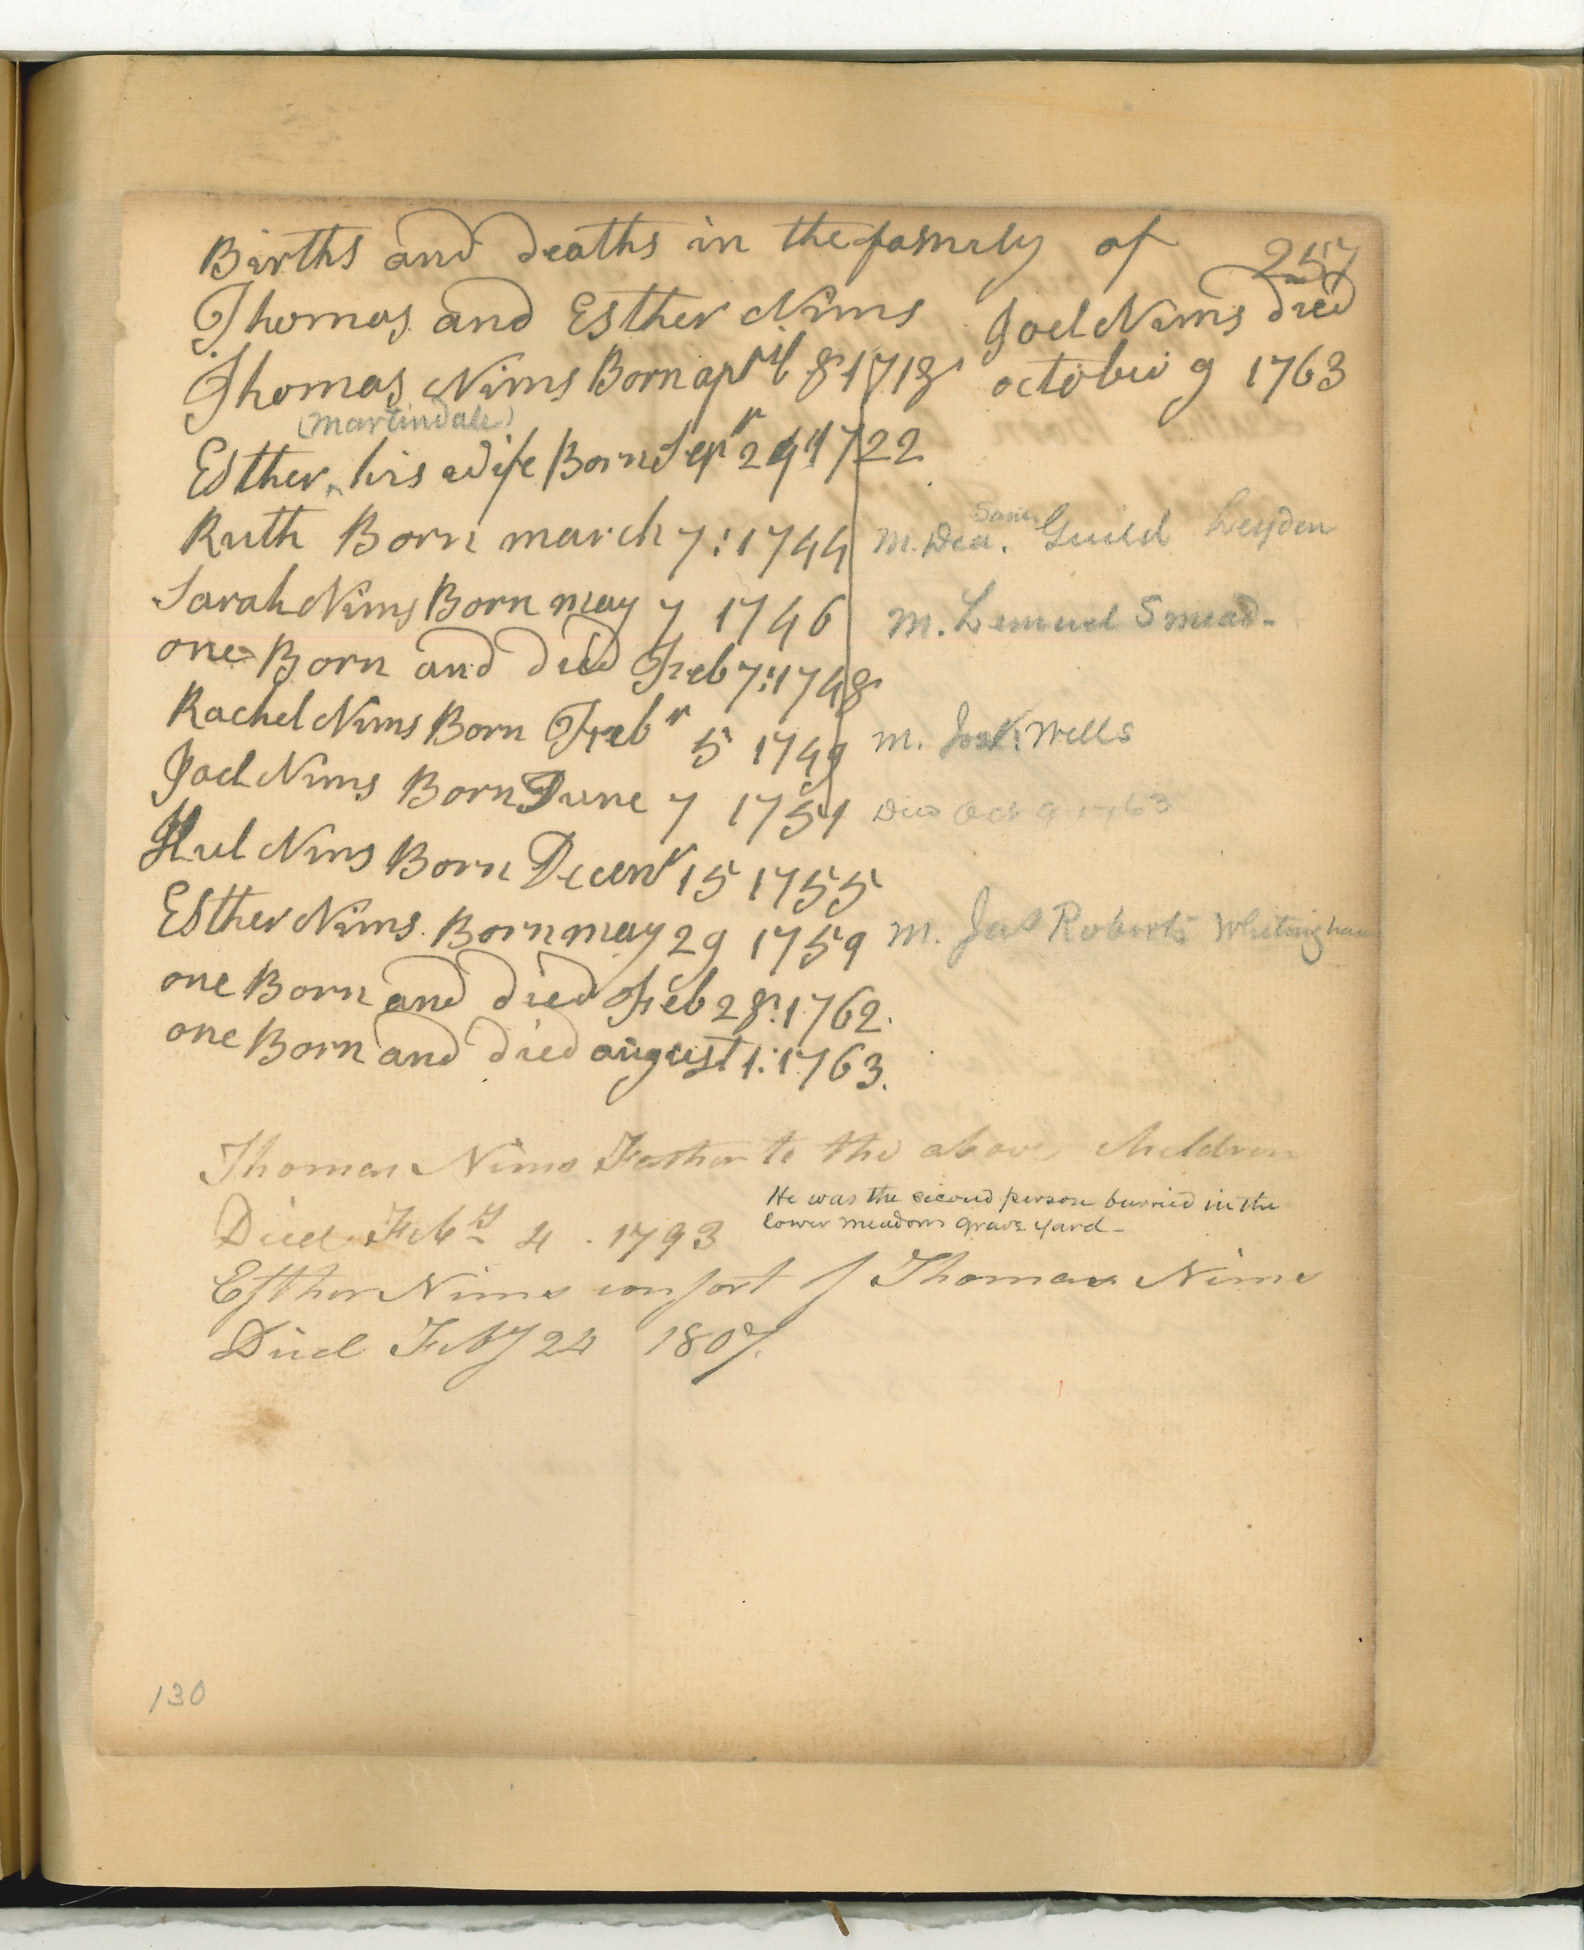 257
Births and deaths in the family of
Thomas and Esther Nims
Joel Nims died
october 9 1763
Thomas Nims Born april 8 1718
(Martindale)
Esther ^ his wife Born Sepr 29 1722
Ruth Born march 7: 1744 M. Dea. Saml Guild Leyden
Sarah Nims Born may 7 1746 M. Lemuel Smead.
one Born and died Feb 7: 1748
Rachel Nims Born Febr 5 1749 M. Wells
Joel Nims Born June 7 1751 Died Oct 9 1763
Hul Nims Born Decemr 15 1755
Esther Nims. Born may 29 1759 M. Jas Roberts Whitingham
one Born and died Feb 28: 1762.
one Born and died august 1: 1763.
Thomas Nims Father to the above Children
Died Feby 4. 1793
He was the second person burried in the
lower meadows grave yard-
Esther Nims consort of Thomas Nims
Died Feby 24 1807.
130